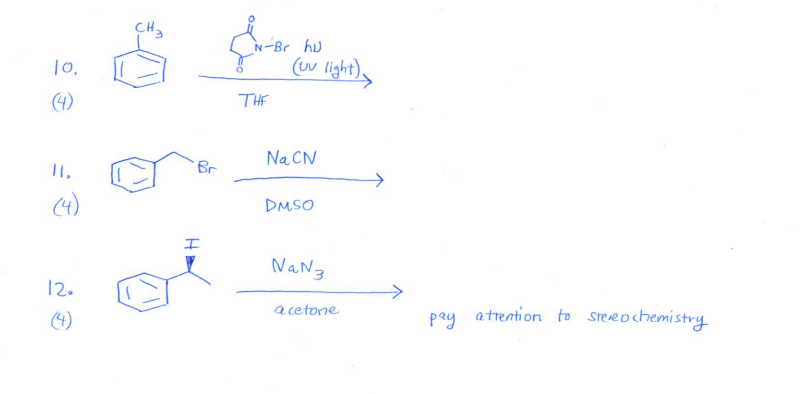 CH3
O
N-Br hν
10.
O
(UV light)
(4)
THF
11.
Br
NaCN
(4)
DMSO
I
NaN3
12.
acetone
(4)
pay attention to stereochemistry